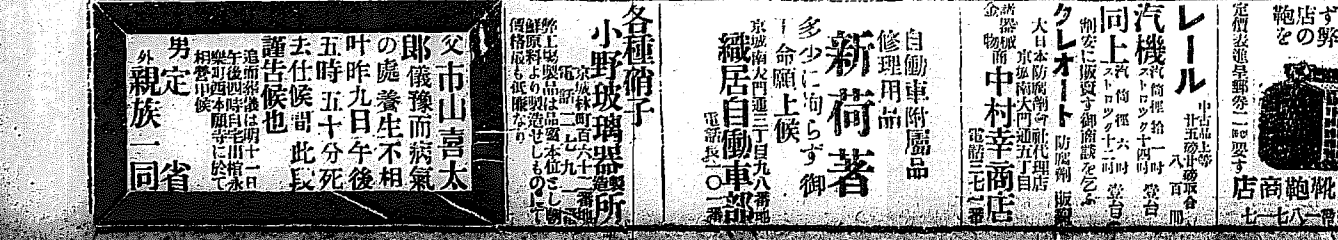 ず弊
店の
鞄を
定價表進呈郵券二錢要す
靴鞄商店
レール
中古品上等
汽機
汽筒徑拾一吋
ストロツク十四吋
壹台
同上
汽筒徑六吋
ストロツク十二吋
壹台
割安に販賣す御商談を乞ふ
クレオート
防腐劑
大日本防腐劑會社代理店
京城南大門通五丁目
諸器械
金物商
中村幸商店
自働車附屬品
修理用品
新荷著
多少に拘らず御
命願上候
京城南大門通三丁目九八番地
織居自働車部
各種硝子
小野玻璃器製造所
京城林町百六十一番地
弊工場製品は品質本位とし朝
鮮原料より製造せしものにて
價格最も低廉なり
父市山喜太
郎儀豫而病氣
の處養生不相
叶昨九日午後
五時五十分死
去仕候間此段
謹告候也
追而葬儀は明十一日
午後四時自宅出棺永
樂町西本願寺に於て
相營申候
男 定省
外 親族一同